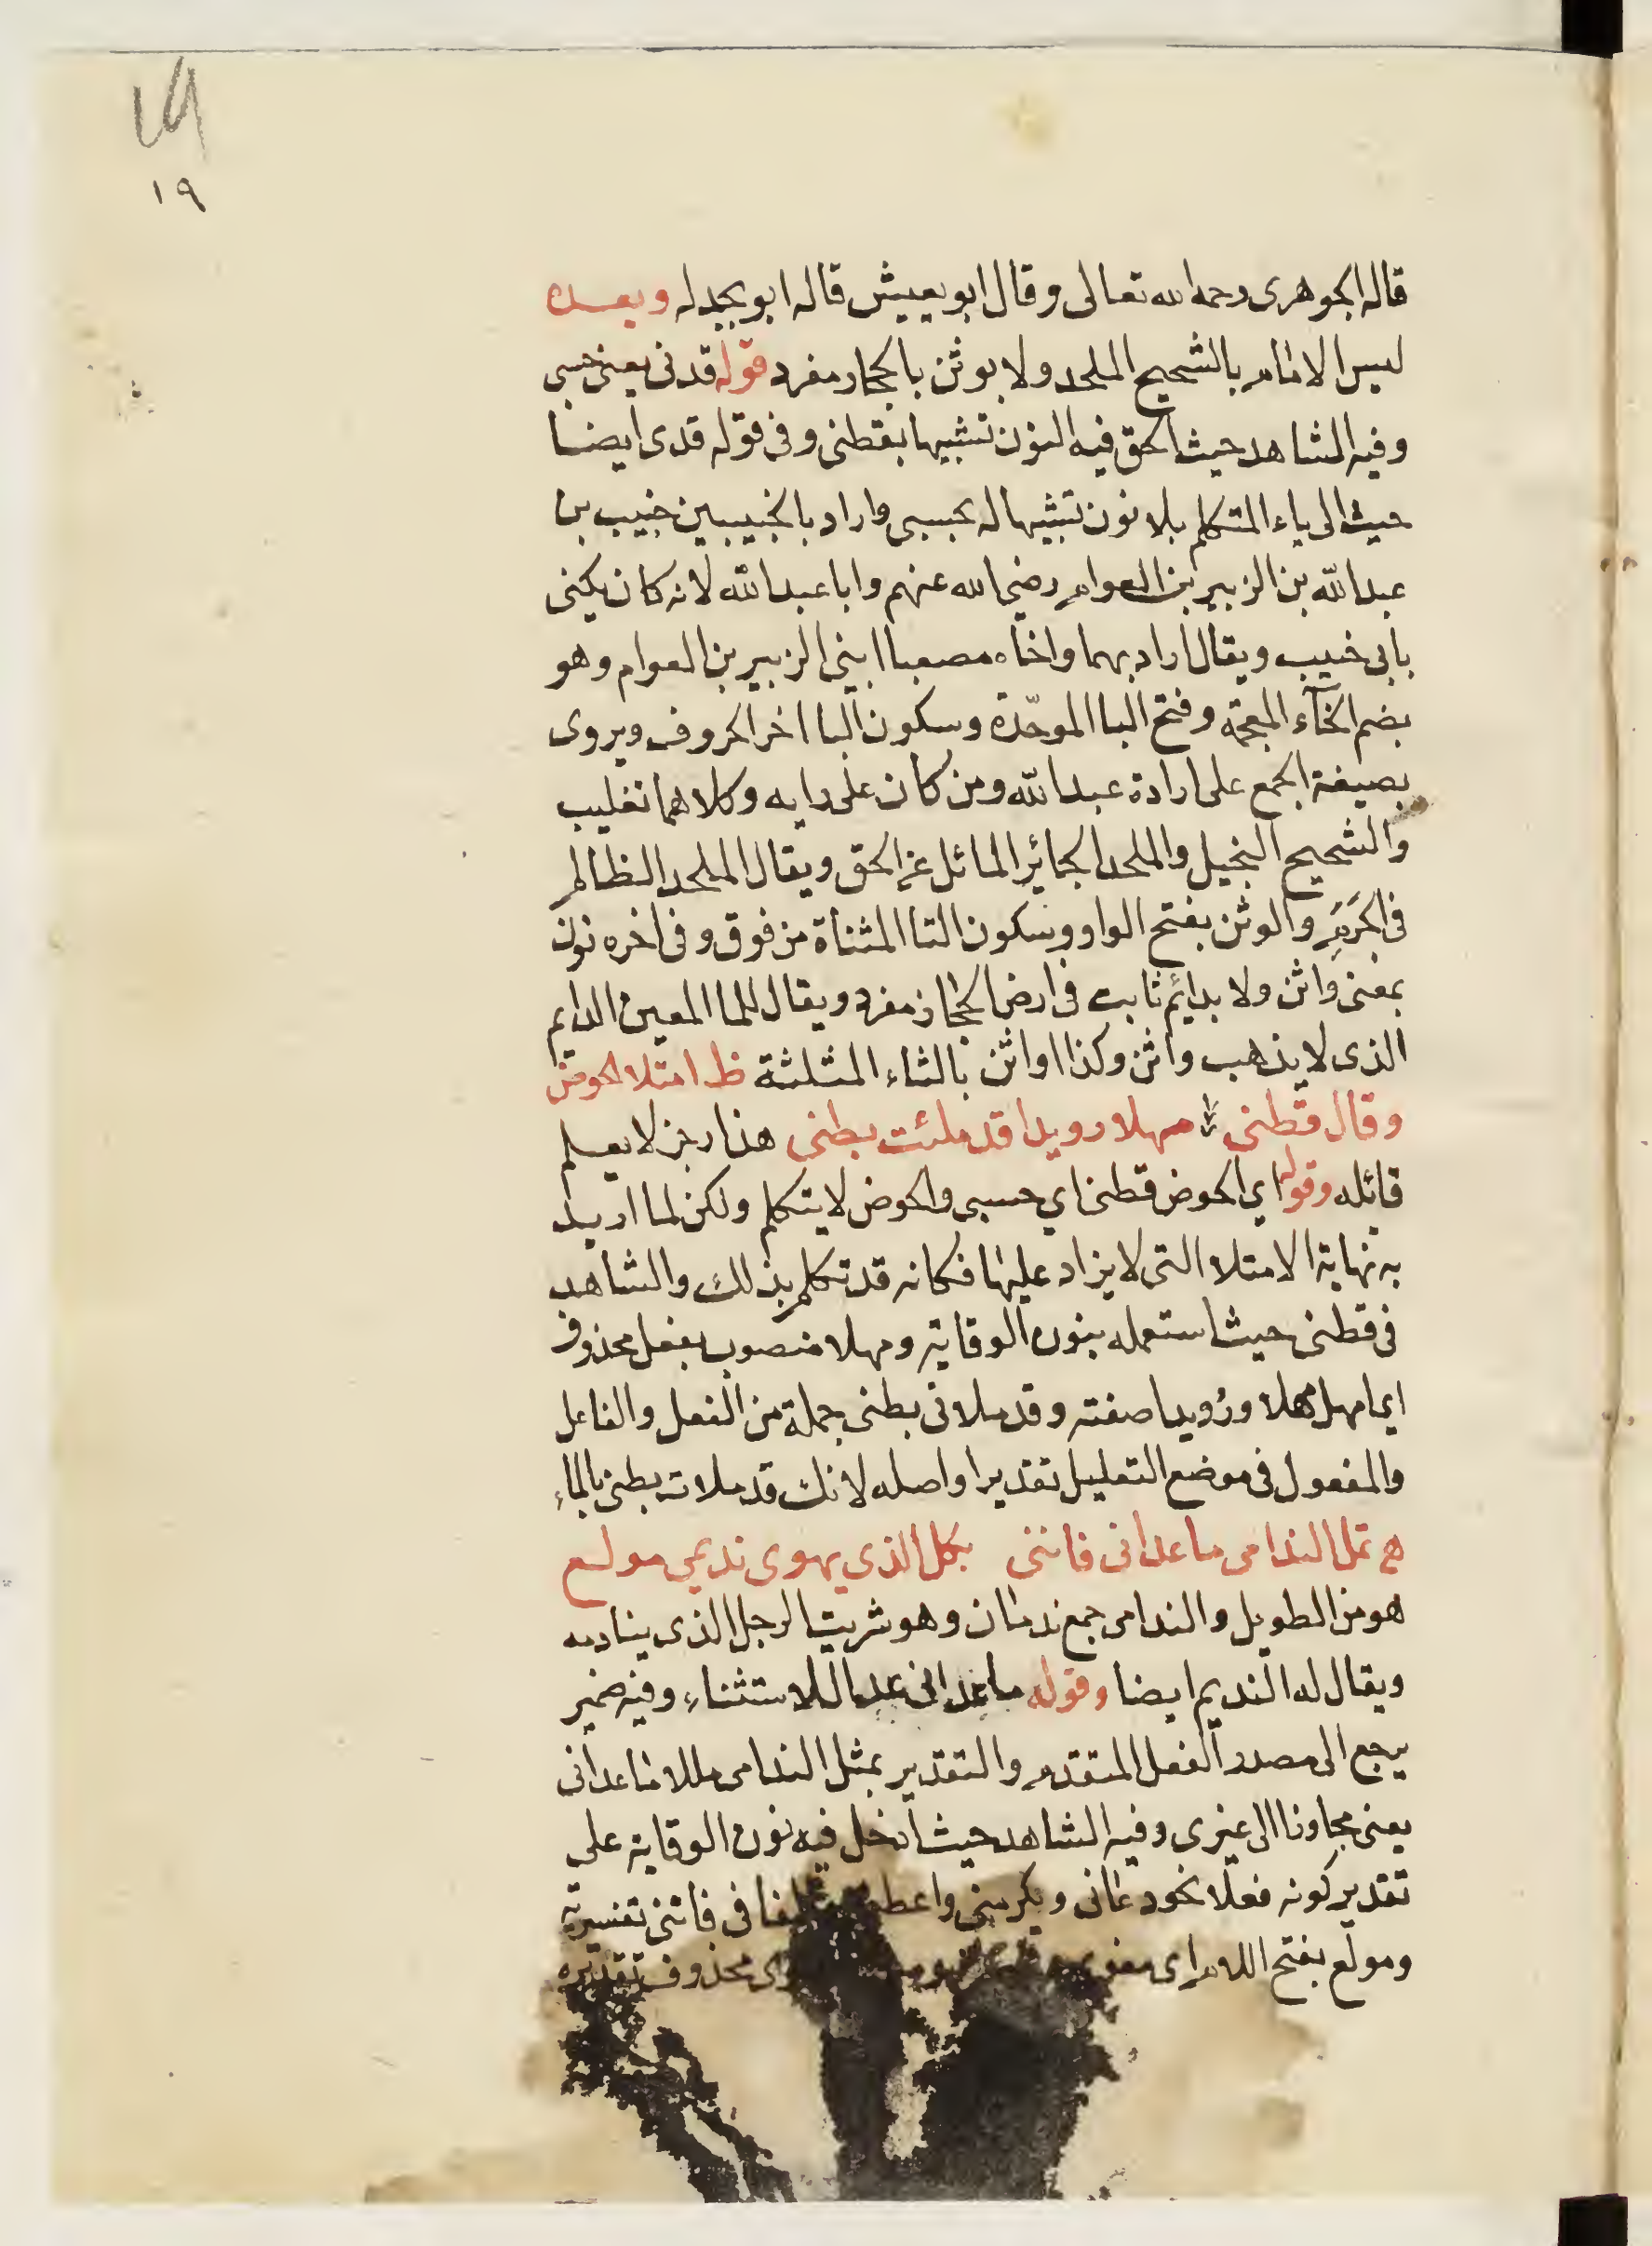 ١٩
قاله الجوهرى رحمه الله تعالى وقال ابو يعيش قاله ابو بجدله وبعده
ليس الامام بالشحيح الملحد ولا بوثن بالحجاز مفرد قوله قدنى يعنى حسبى
وفيه الشاهد حيث الحق فيه النون تشبيها بقطنى وفى قوله قدى ايضا
حيث الى ياء المتكلم بلا نون تشبيها له بحسبى واراد بالخبيبين خبيب بن
عبد الله بن الزبير بن العوام رضى الله عنهم وابا عبد الله لانه كان يكنى
بابى خبيب ويقال اراد بهما واخاه مصعبا ابنى الزبير بن العوام وهو
بضم الخآء المعجمة وفتح البا الموحّدة وسكون اليا اخر الحروف ويروى
بصيغة الجمع على ارادة عبد الله ومن كان على رايه وكلاهما تغليب
والشحيح البخيل والملحد الجائر المائل عن الحق ويقال الملحد الظالم
فى الحَرَم والوتن بفتح الواو وسكون التا المثناة من فوق وفى اخره نون
بمعنى واتن ولا بدائم ثابت فى ارض الحجاز مفرد ويقال للما المعين الدايم
الذى لا يذهب واتن وكذا اواثن بالثاء المثلثة ظ امتلا الحوض
وقال قطنى مهلا رويدا قد ملئت بطنى هذا رجز لا يعلم
قائله وقوله اي الحوض قطنى اي حسبى والحوض لا يتكلم ولكن لما اريد
به نهاية الامتلا التى لا يزاد عليها فكانه قد تكلم بذلك والشاهد
فى قطنى حيث استعمله بنون الوقاية ومهلا منصوب بفعل محذوف
اى امهل مهلا ورُويدا صفته وقد ملات بطنى جملة من الفعل والفاعل
والمفعول فى موضع التعليل تقديرا واصله لانك قد ملات بطنى بالماء
هع تمل الندامى ما عدانى فاننى بكل الذي يهوى نديمي مولع
هو من الطويل والندامى جمع ندمان وهو شريب الرجل الذى ينادمه
ويقال له النديم ايضا وقوله ما عدانى عدا للاستثناء وفيه ضمير
يرجع الى مصدر الفعل المتقدم والتقدير يمثل الندامى مللا ما عدانى
يعنى مجاوزا الى غيرى وفيه الشاهد حيث ادخل فيه نون الوقاية على
تقدير كونه فعلا نحو دعانى ويكرمنى فى فاننى تفسيرية
ومولع بفتح اللام اى محذوف تقديره